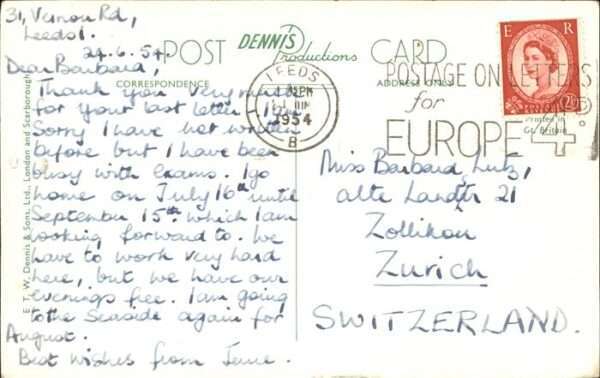 31, Vernon Rd,
Leeds 1.
24.6.54.
Dear Barbara,
Thank you very much
for your last letter. I am
Sorry I have not written
before but I have been
busy with exams. I go
home on July 16th until
September 15th which I am
looking forward to. We
have to work very hard
here, but we have our
evenings free. I am going
to the Seaside again for
August.
Best wishes from June.
POST CARD
DENNIS
Productions
CORRESPONDENCE
ADDRESS ONLY
E. T. W. Dennis & Sons, Ltd., London and Scarborough
LEEDS
PM
1954
B
POSTAGE ON LETTERS
for
EUROPE 4D
E R
Printed in
Gt. Britain
Miss Barbara Lutz,
alte Landstr 21
Zollikon
Zurich
SWITZERLAND.